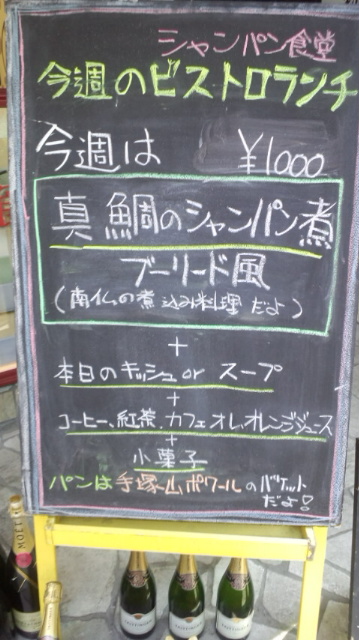 シャンパン食堂
今週のビストロランチ
今週は ¥1000
真鯛のシャンパン煮
ブーリード風
(南仏の煮込み料理だよ)
+
本日のキッシュor スープ
+
コーヒー、紅茶、カフェオレ、オレンジジュース
+
小菓子
パンは手塚山ポワールのバゲット
だよ!
MOËT